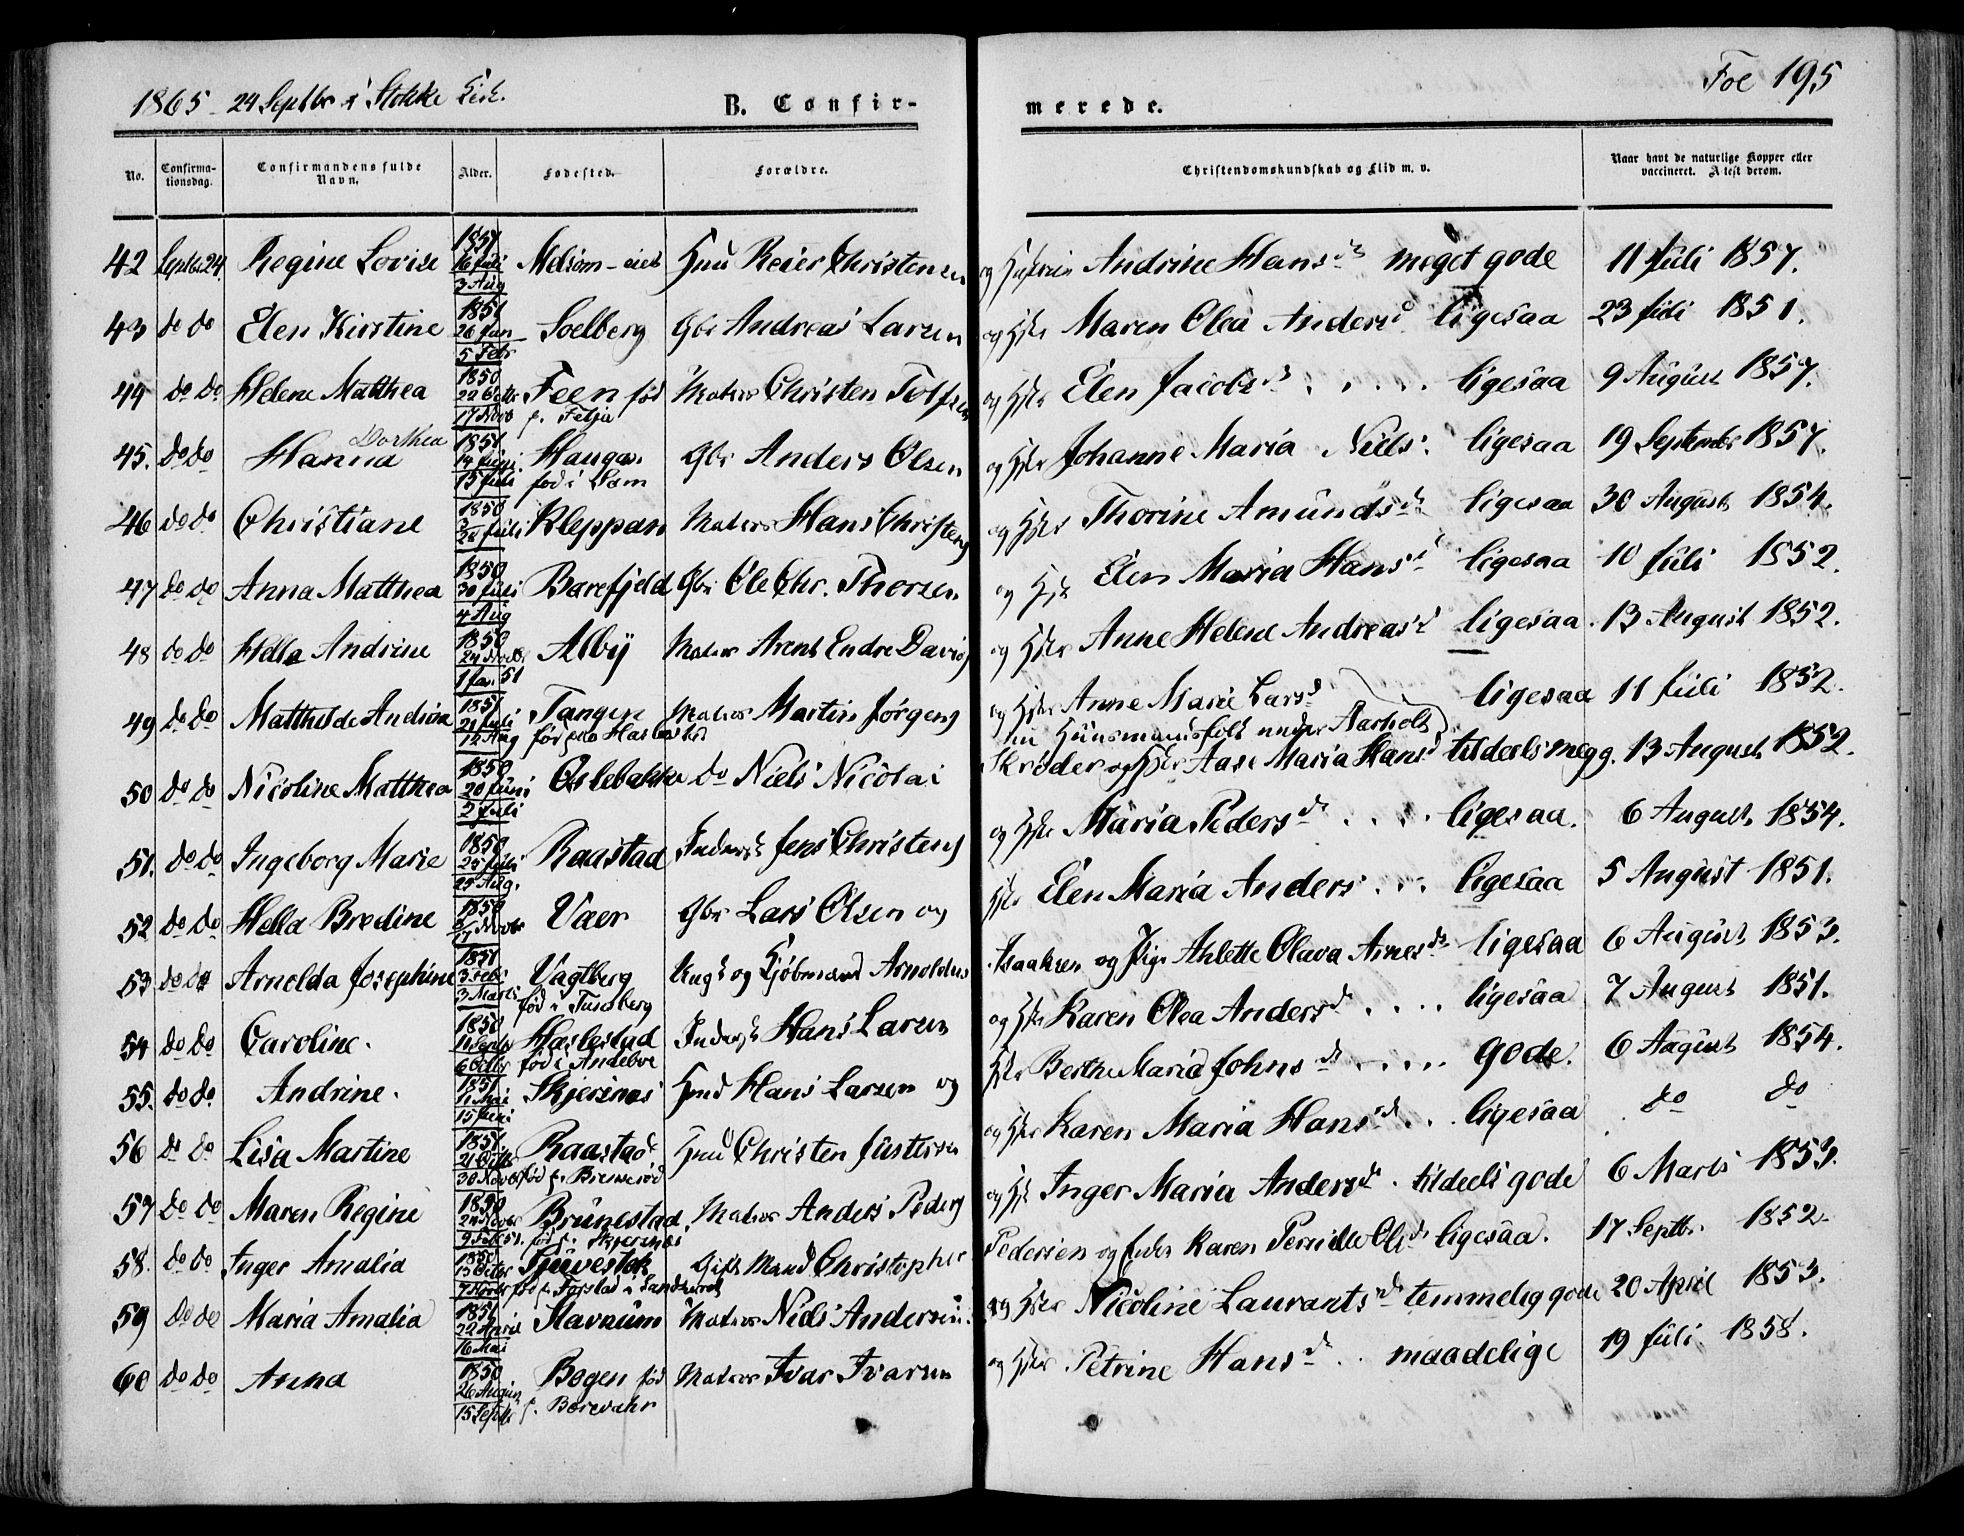 1865 - 24 Septbr i Stokke Kirk.
B. Confir-
merede.
Fol 195
No.
Confirma-tionsdag.
Confirmandens fulde Navn.
Alder.
Fødested.
Forældre.
Christendomskundskab og Flid m. v.
Naar havt de naturlige Kopper eller vaccineret. Attest derom.
42 Septbr 24 Regine Lovise 1851 16 Juli 3 Aug Melsom-eiet Hmd Reier Christensen og Hustrue Andrine Hansd meget gode 11 Juli 1857.
43 do do Elen Kirstine 1851 26 Jan 5 Febr Soelberg Gbr Andreas Larsen og Hster Maren Olea Andersd ligesaa 23 Juli 1851.
44 do do Helene Matthea 1850 22 Octbr 17 Novb Feen fød p. Felju Matros Christen Tolfsen og Hster Elen Jacobsd ligesaa 9 August 1857.
45. do do Hanna Dorthea 1851 14 Juni 13 Juli Haugan fød i Sem Gbr Anders Olsen og Hster Johanne Maria Niels ligesaa 19 Septembr 1857.
46 do do Christiane 1850 28 Juli Kleppan Matros Hans Christens og Hster Thorine Amundsd ligesaa 30 August 1854.
47 do do Anna Matthea 1850 30 Juli 4 Aug Barefjeld Gbr Ole Chr. Thorsen og Hst Elen Maria Hansd ligesaa 10 Juli 1852.
48 do do Hella Andrine 1850 24 Novbr 1 Jan. 51 Alby Matros Arent Endre Davids og Hster Anne Helene Andreasd ligesaa 13 August 1852.
49 do do Matthilde Andrine 1851 21 Juli 12 Aug Tangen fød paa Haslestad Matros Martin Jørgens og Hster Anne Marie Larsd nu Huusmandsfolk under Aarholt ligesaa 11 Juli 1852.
50 do do Nicoline Matthea 1850 20 Juni 2 Juli Oslebakke do Niels Nicolai Skrøder og Hster Aase Maria Hansd tildeels meg g. 13 August 1852.
51. do do Ingeborg Marie 1850 25 Juli 25 Aug. Raastad Inderst Jens Christens og Hster Maria Pedersd ligesaa. 6 August 1854.
52 do do Hella Bredine 1850 Novbr Vaer Gbr Lars Olsen og Hster Elen Maria Anders ligesaa 5 August 1851.
53 do do Arnolda Josephine 1851 3 Febr 3 Marts Vagtberg fød i Tunsberg Ungk og Kjøbmand Arnoldus Isaaksen og Pige Ahlette Olava Arnesd ligesaa 6 August 1853.
54 do do Caroline. 1850 11 Septbr 6 Octbr Haslestad fød i Andebu Inderst Hans Larsen og Hster Karen Olea Andersd ligesaa 7 August 1851.
55. do do. Andrine. 1851 11 Mai 15 Juni Skjersnes Hmd Hans Larsen og Hster Berthe Maria Johnsd gode. 6 August 1854.
56 do do Lisa Martine 1851. 21 Octbr 30 Novb Raastad fød p. Bremerød Hmd Christen Justesen og Hster Karen Maria Hansd ligesaa do do
57 do do Maren Regine 1850 24 Novbr 9 Feb 51. Brunestad fød p. Skjersnes Matros Anders Peders og Hst Inger Maria Andersd tildeels gode 6 Marts 1853.
58. do do Inger Amalia 1850 13 Octbr 7 Novbr Tjuvestok fød p. Forstad i Sandeherred Gift Mand Christopher Pedersen og Enke Karen Pernille Olsd ligesaa. 17 Septb. 1852
59 do do Maria Amalia 1851 22 April 16 Mai Stavnum Matros Niels Andersen og Hster Nicoline Laurantsd temmelig gode 20 April 1853.
60 do do Anna 1850 26 August 15 Septbr Bogen fød p. Borevahr Matros Ivar Ivarsen og Hster Petrine Hansd maadelige 19 Juli 1858.